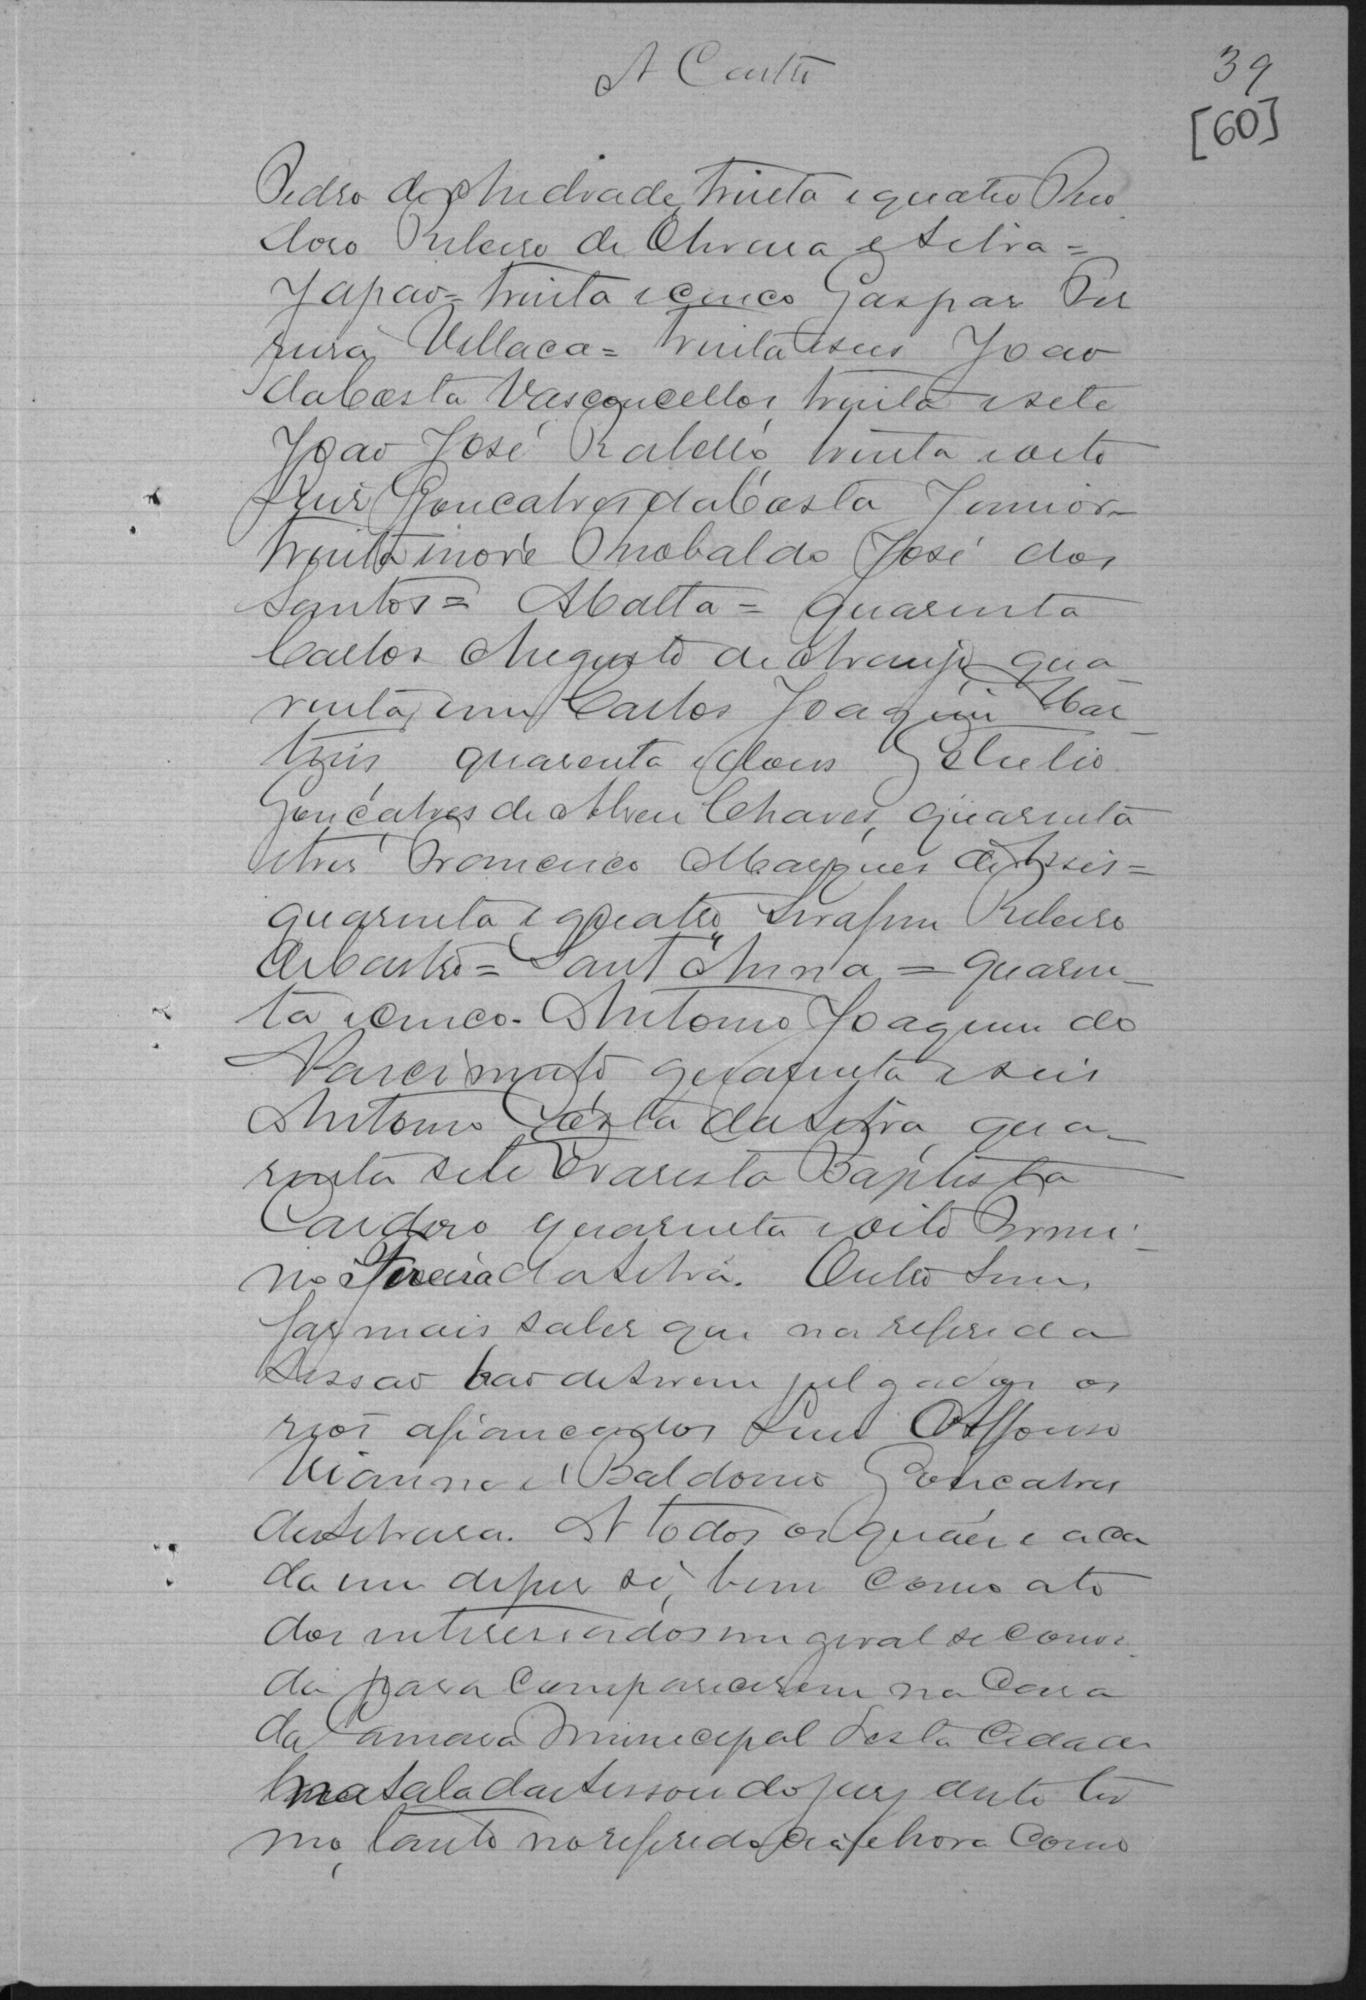 A Castro
39
[60]
Pedro de Andrade, trinta e quatro Theo
doro Ribeiro de Oliveira e Silva =
Japao = trinta e cinco Gaspar Fer
reira Villaca = trinta e seis Joao
da Costa Vasconcellos, trinta e sete
Joao José Rabello, trinta e oito
Luis Goncalves da Costa Junior =
trinta e nove Theobaldo José dos
Santos = Matta = quarenta
Carlos Augusto de Araujo, qua
renta e um Carlos Joaquim Mar
tins quarenta e dous Getulio
Goncalves de Abreu Chaves, quarenta
e tres Francisco Marques de Assis =
quarenta e quatro, Serafim Ribeiro
de Castro = Sant'Anna = quaren
ta e cinco. Antonio Joaquim do
Nascimento quarenta e seis
Antonio Costa da Silva, qua
renta sete Evaristo Baptista
Cardoso quarenta e oito Firmi
no Pereira da Silva. Outro sim,
faz mais saber que na referida
Sessao hao de serem julgados os
reos afiancados Luis Affonso
Vianna e Baldoino Goncalves
da Silveira. A todos os quaes e a ca
da um de per si, bem como a to
dos interessados em geral se convi
da para comparecerem na Casa
da Camara Municipal desta Cidade
na sala das Sessoes do jury deste ter
mo, tanto no referido dia e hora como